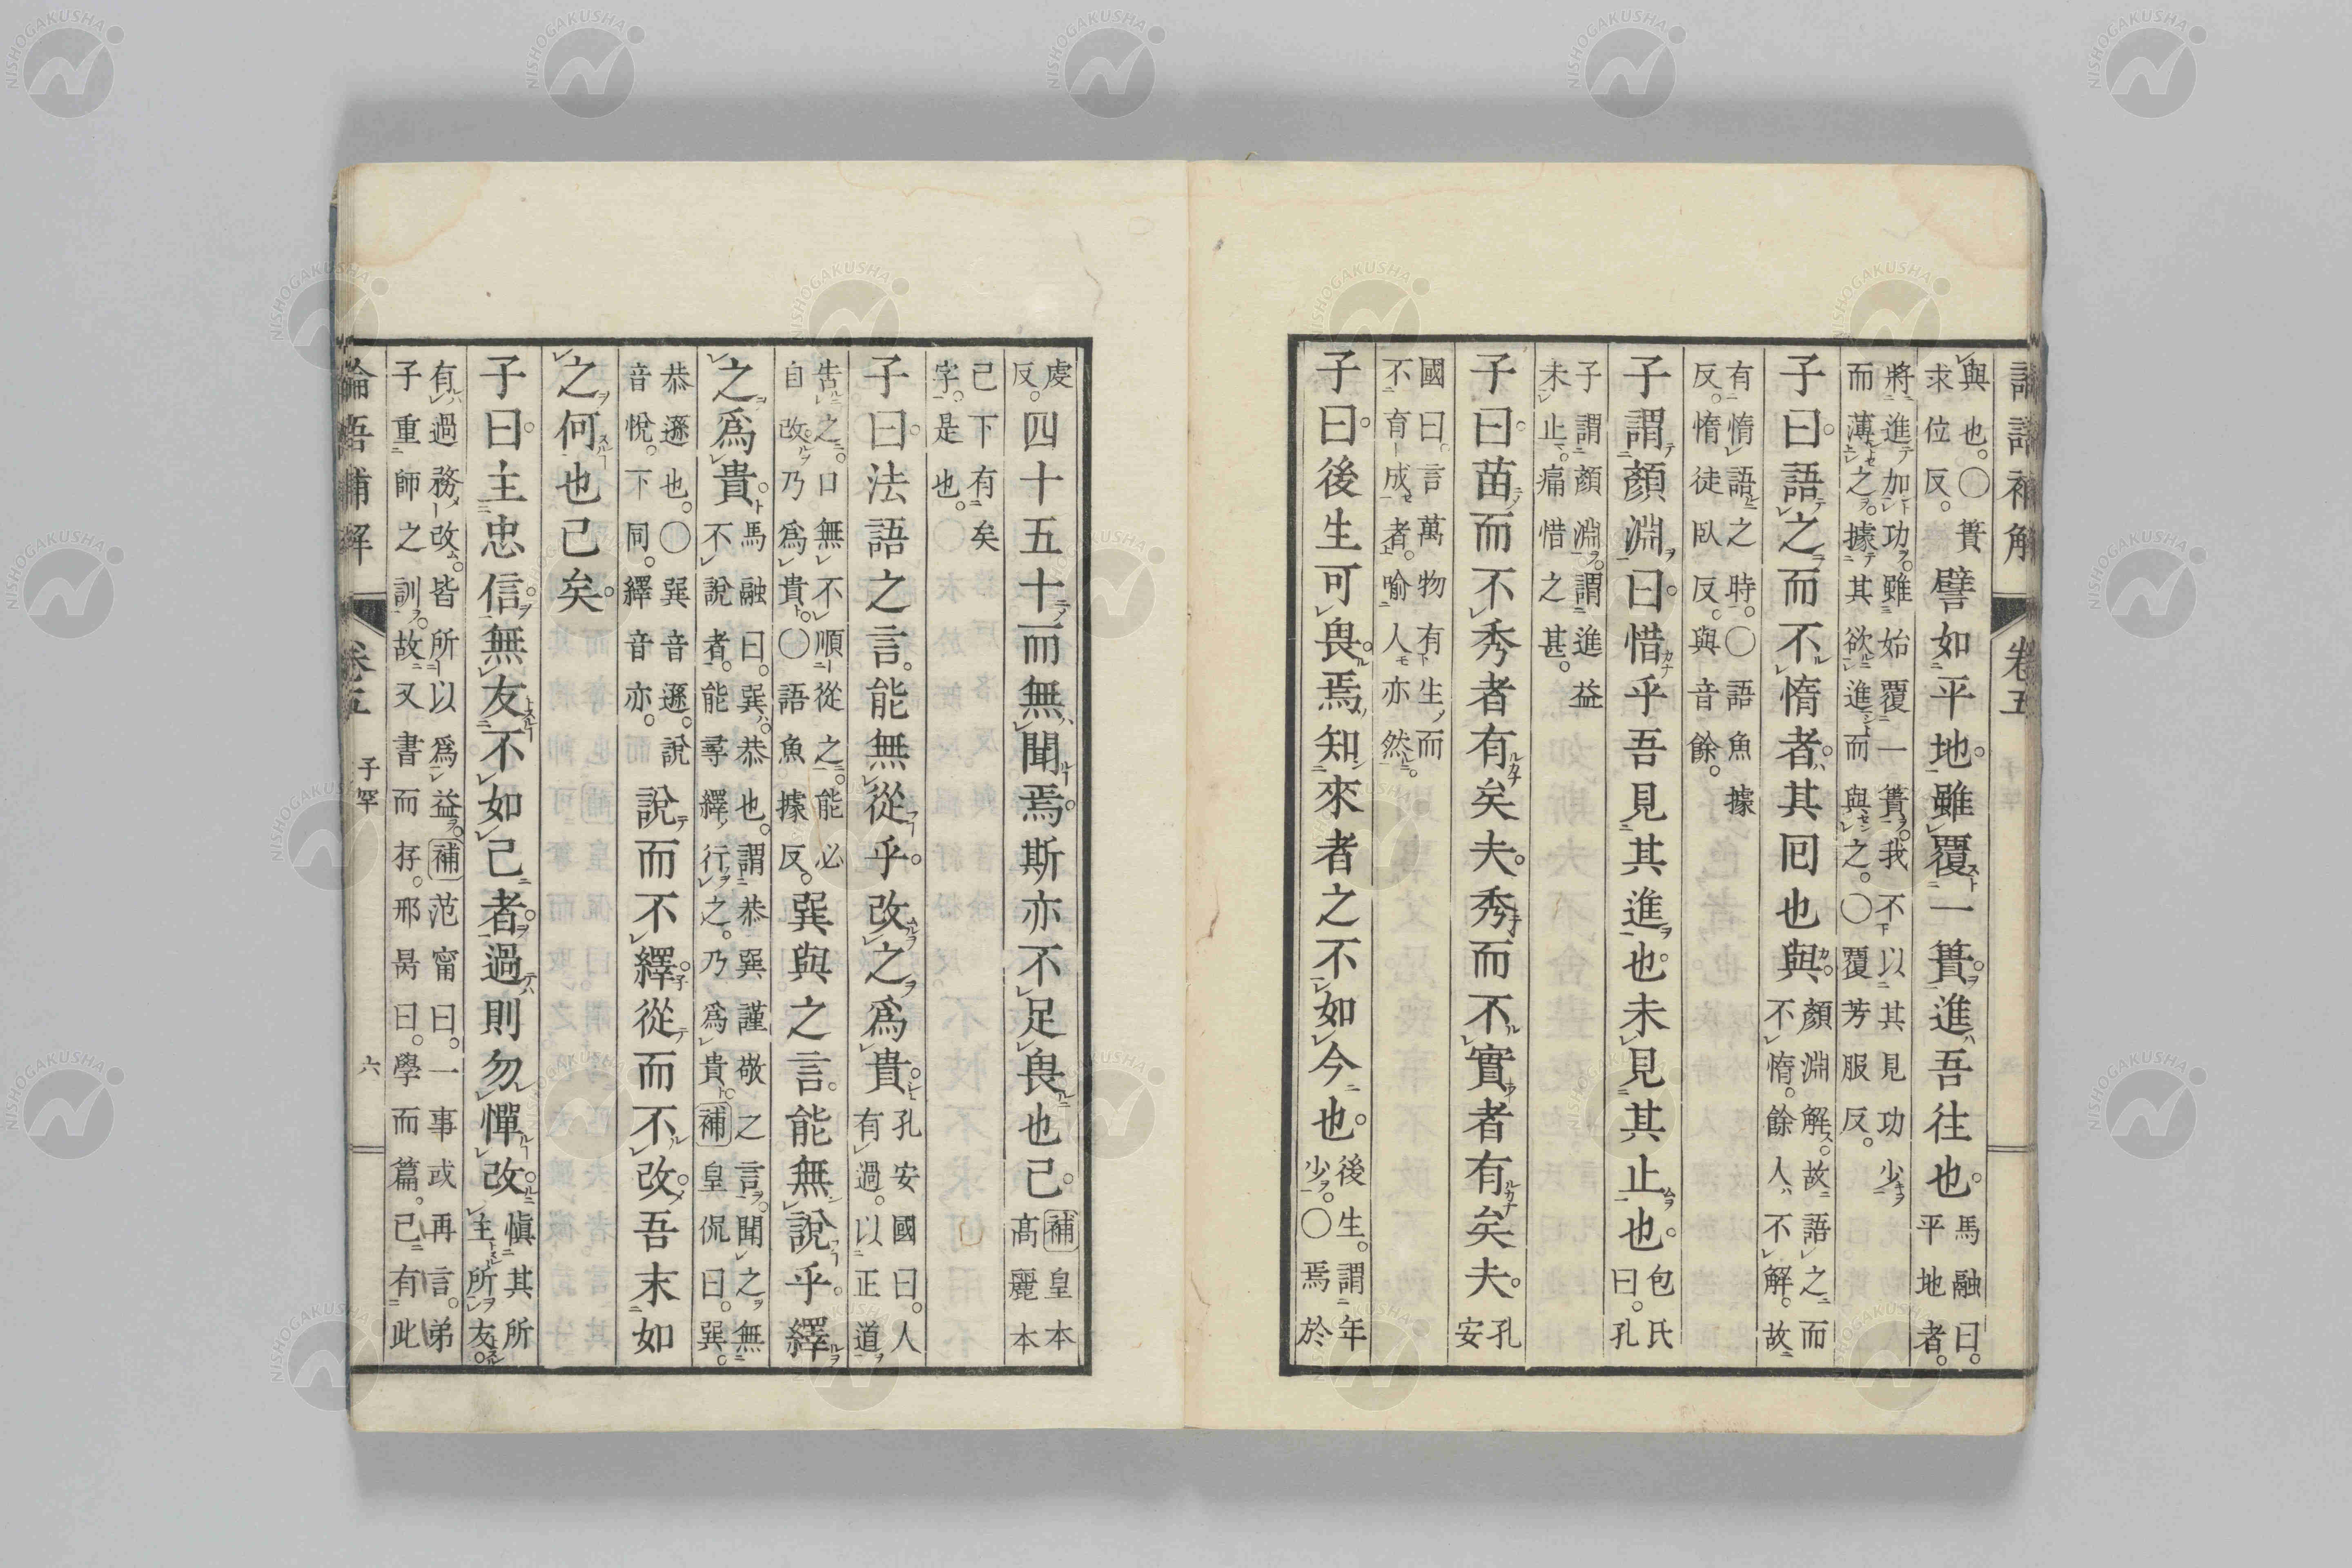 論語補解 卷五
與也。〇簣求位反。譬如平地。雖覆一簣。進吾往也。馬融曰。平地者。
將進加功。雖始覆一簣。我不以其見功少而薄之。據其欲進而與之。〇覆芳服反。
子曰。語之而不惰者。其囘也與。顏淵解。故語之而不惰。餘人不解。故
有惰語之時。〇語魚據反。惰徒臥反。與音餘。
子謂顏淵曰。惜乎吾見其進也。未見其止也。包氏曰。孔
子謂顏淵。謂進益未止。痛惜之甚。
子曰。苗而不秀者有矣夫。秀而不實者有矣夫。孔安
國曰。言萬物有生而不育成者。喻人亦然。
子曰。後生可畏。焉知來者之不如今也。後生。謂年少。〇焉於
虔反。四十五十而無聞焉。斯亦不足畏也已。補皇本高麗本
已下有矣字。是也。
子曰。法語之言。能無從乎。改之爲貴。孔安國曰。人有過。以正道
告之。口無不順從之。能必自改。乃爲貴。〇語魚據反。巽與之言。能無說乎。繹
之爲貴。馬融曰。巽。恭也。謂恭巽謹敬之言。聞之無不說者。能尋繹行之。乃爲貴。補皇侃曰。巽。
恭遜也。〇巽音遜。說音悅。下同。繹音亦。說而不繹。從而不改。吾末如
之何也已矣。
子曰。主忠信。無友不如己者。過則勿憚改。愼其所主所友。
有過務改。皆所以爲益。補范甯曰。一事或再言。弟子重師之訓。故又書而存。邢昺曰。學而篇。已有此
論語補解 卷五 子罕 六
NISHOGAKUSHA